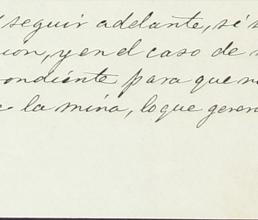 seguir adelante, si
cion, y en el caso de
pondiente para que
la mina, lo que geren